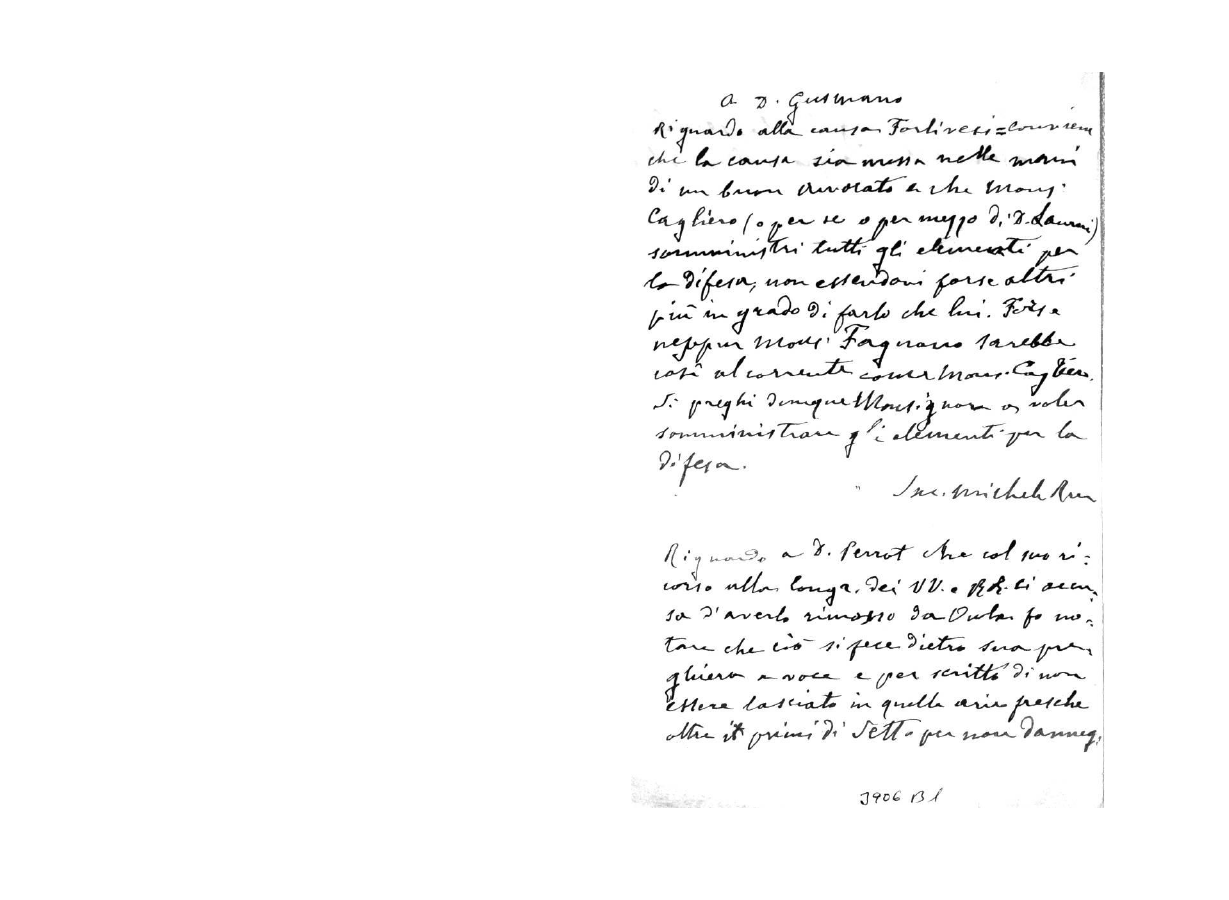 a D. Gusmano
Riguardo alla causa Fortivesi = conviene
che la causa sia messa nelle mani
di un buon avvocato e che Mons.
Cagliero (o per se o per mezzo di D.
somministri tutti gli elementi per
la difesa, non essendovi forse altri
più in grado di farlo che lui. Forse
neppur Mons. Fagnano sarebbe
così al corrente come Mons. Cagliero.
Si preghi dunque Monsignore a voler
somministrare gli elementi per la
difesa.
Sac. Michele Rua
Riguardo a D. Perrot che col suo ri=
corso alla Congr. dei VV. e RR. ci accu=
sa d'averlo rimosso da fo no=
tare che ciò si fece dietro sua pre
ghiera a voce e per scritto di non
essere lasciato in quelle arie fresche
oltre i primi di Sett. per non danneg.
3906 B1